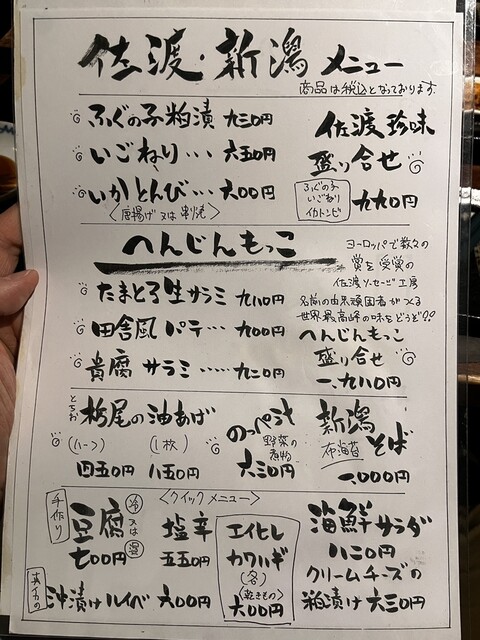 佐渡・新潟メニュー
商品は税込となっております。
ふぐの子粕漬 九三〇円
いごねり… 六五〇円
いかとんび… 六〇〇円
〈唐揚げ又は串焼〉
佐渡珍味
盛り合せ
ふぐの子
いごねり
イカトンビ
九九〇円
へんじんもっこ
たまとろ生サラミ 九八〇円
田舎風パテ… 九〇〇円
貴腐サラミ…… 九二〇円
ヨーロッパで数々の
賞を受賞の
佐渡ソーセージ工房
名前の由来頑固者がつくる
世界最高峰の味をどうぞ!!
へんじんもっこ
盛り合せ
一、九八〇円
とちお
栃尾の油あげ
(ハーフ) (1枚)
四五〇円 八五〇円
のっぺ汁
野菜の
煮物
六三〇円
新潟
布海苔
そば
一、〇〇〇円
〈クイックメニュー〉
手作り
豆腐
冷又は温
七〇〇円
塩辛
五五〇円
真イカの
沖漬けルイベ 六〇〇円
エイヒレ
カワハギ
(各)
(乾きもの)
六〇〇円
海鮮サラダ
八二〇円
クリームチーズの
粕漬け 六三〇円